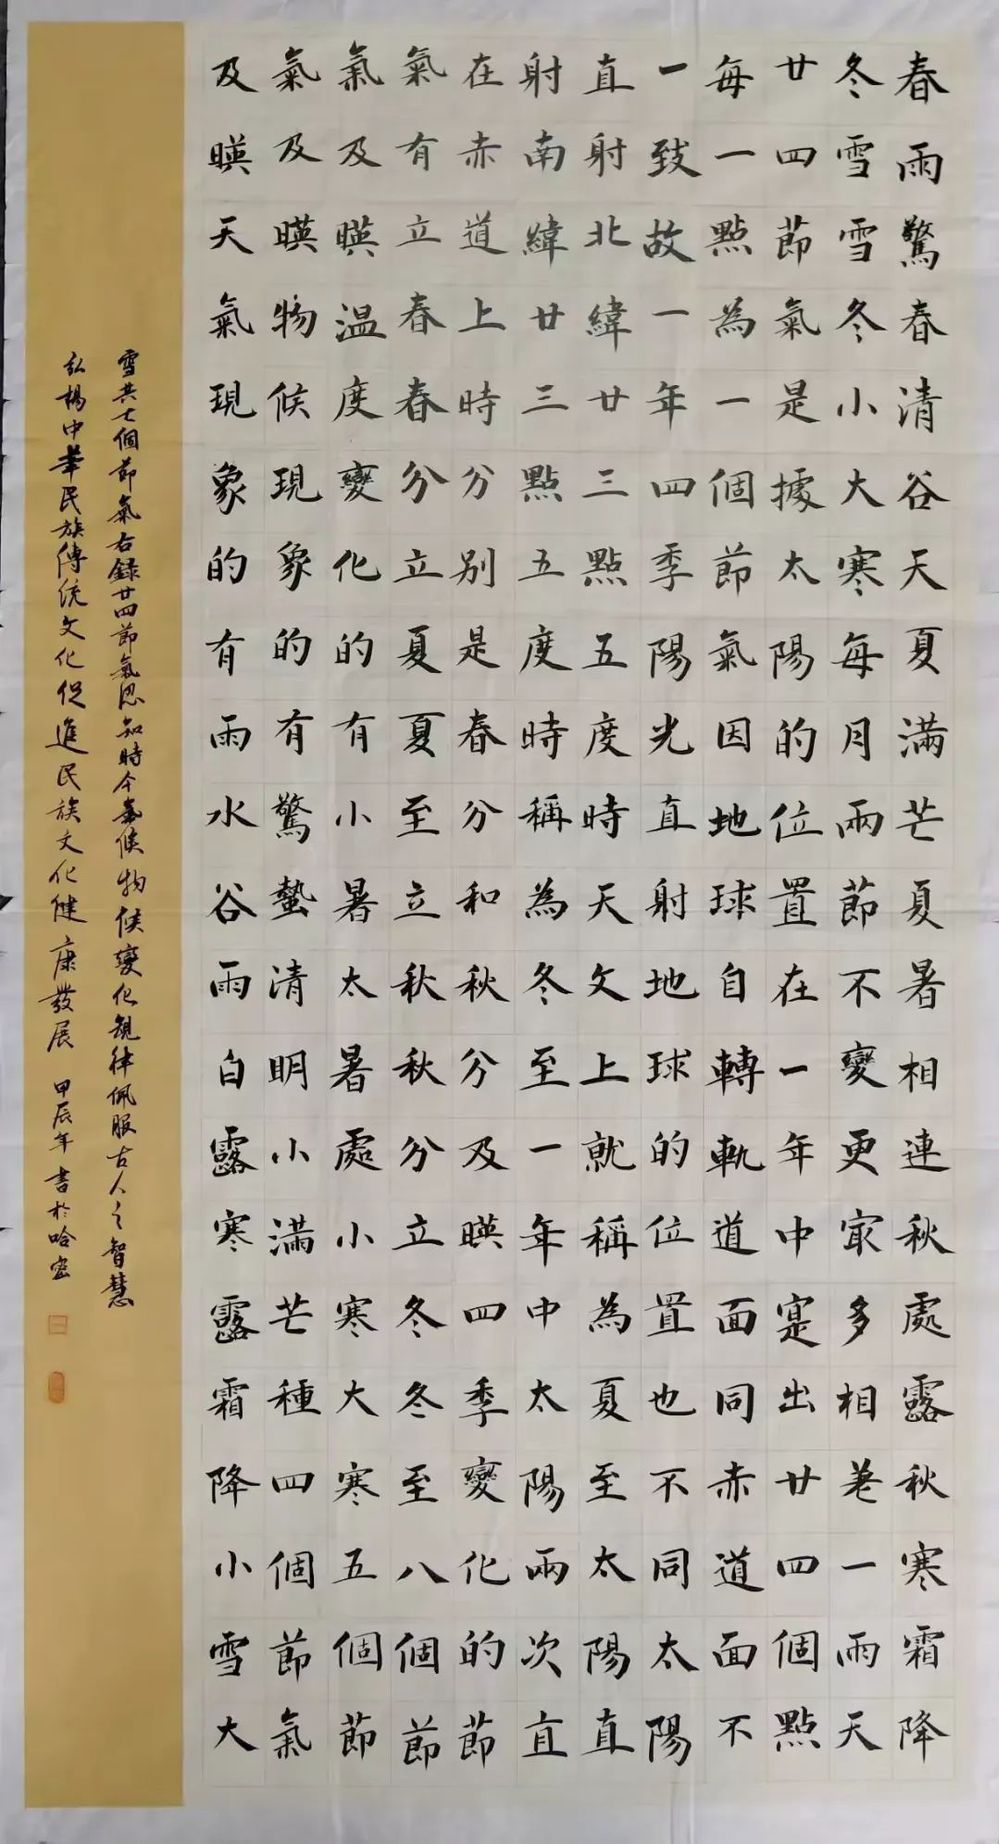 春雨驚春清谷天夏滿芒夏暑相連秋處露秋寒霜降
冬雪雪冬小大寒每月兩節不變更冣多相差一兩天
廿四節氣是據太陽的位置在一年中寔出廿四個點
每一點為一個節氣因地球自轉軌道面同赤道面不
一致故一年四季陽光直射地球的位置也不同太陽
直射北緯廿三點五度時天文上就稱為夏至太陽直
射南緯廿三點五度時稱為冬至一年中太陽兩次直
在赤道上時分別是春分和秋分及暎四季變化的節
氣有立春春分立夏夏至立秋秋分立冬冬至八個節
氣及暎温度變化的有小暑太暑處小寒大寒五個節
氣及暎物候現象的有驚蟄清明小滿芒種四個節氣
及暎天氣現象的有雨水谷雨白露寒露霜降小雪大
雪共七個節氣右錄廿四節氣恩知時令氣候物候變化規律佩服古人之智慧
弘楊中華民族傳统文化促進民族文化健康發展 甲辰年書於哈密